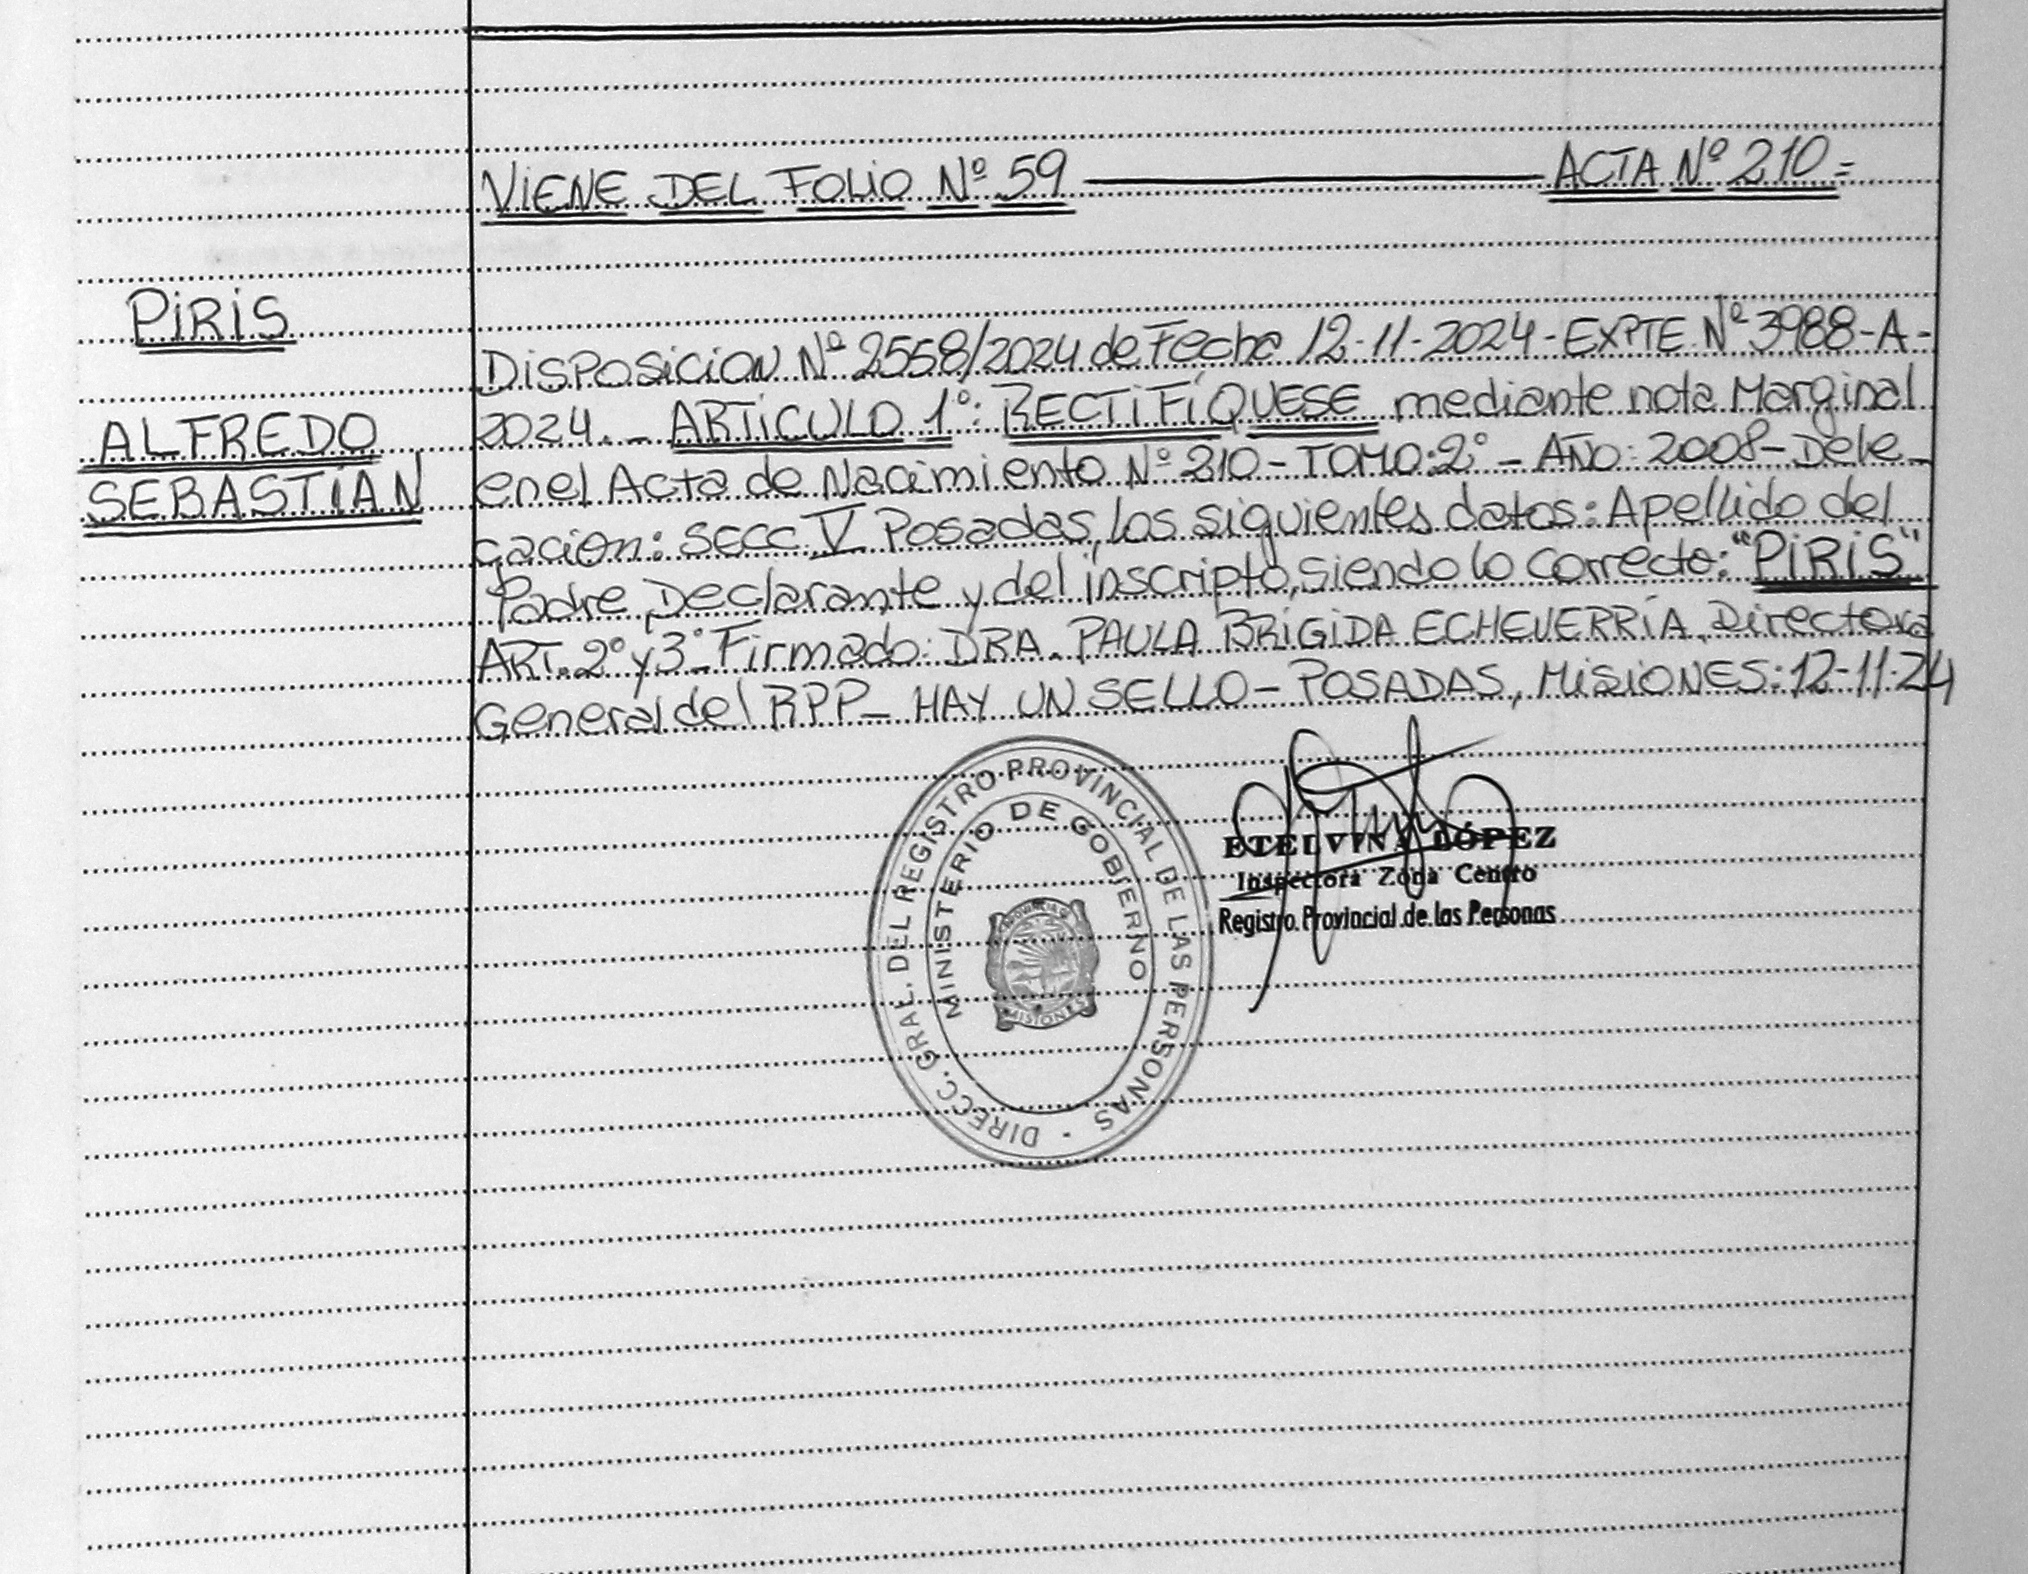 VIENE DEL FOLIO Nº 59 ACTA Nº 210=
PIRIS
ALFREDO
SEBASTIÁN
DISPOSICION Nº 2558/2024 de Fecha 12-11-2024-EXPTE Nº 3988-A-
2024.- ARTICULO 1º: RECTIFÍQUESE mediante nota Marginal
en el Acta de Nacimiento Nº 210-TOMO:2º-AÑO:2008-Dele-
gacion: SECC V Posadas, los siguientes datos: Apellido del
Padre Declarante y del inscripto, siendo lo correcto: "PIRIS"
ART. 2º y 3º Firmado: DRA. PAULA BRÍGIDA ECHEVERRÍA Directora
General del RPP- HAY UN SELLO- POSADAS, MISIONES:12-11-24
DIRECC. GRAL. DEL REGISTRO PROVINCIAL DE LAS PERSONAS -
MINISTERIO DE GOBIERNO
PROVINCIA DE
MISIONES
ETELVINA LÓPEZ
Inspectora Zona Centro
Registro Provincial de las Personas